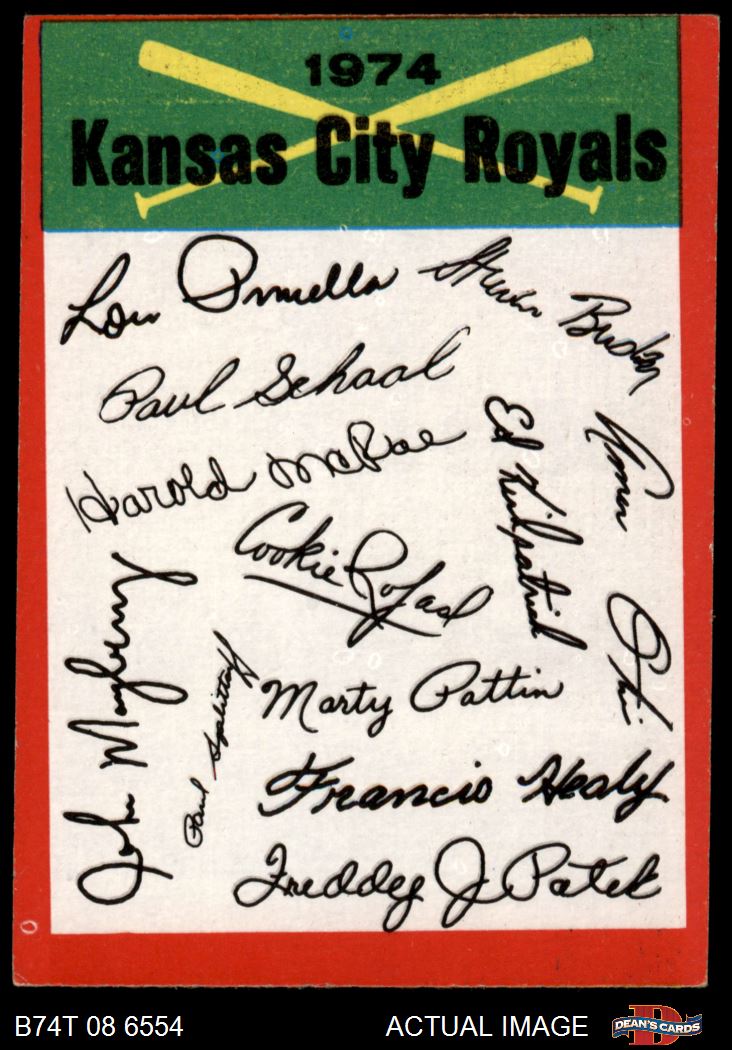 1974
Kansas City Royals
Lou Piniella
Steven Busby
Paul Schaal
Harold McRae
Ed Kirkpatrick
Amos Otis
Cookie Rojas
John Mayberry
Paul Splittorff
Marty Pattin
Francis Healy
Freddey J Patek
B74T 08 6554
ACTUAL IMAGE
DEAN'S CARDS